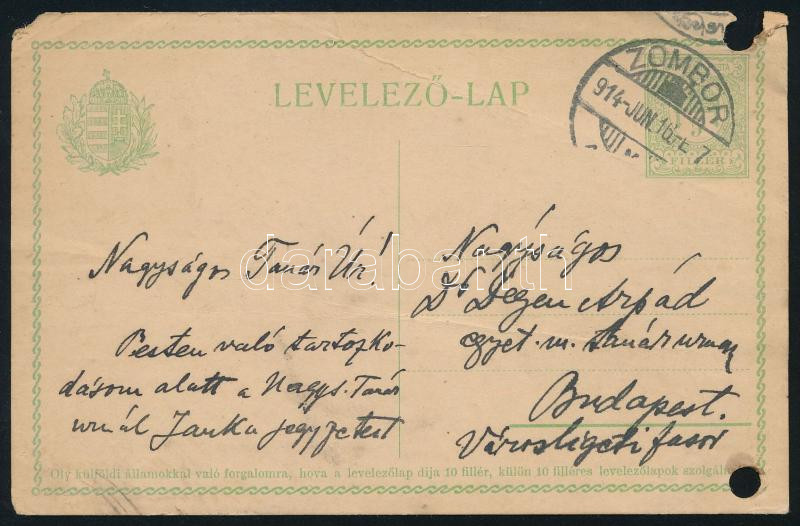 LEVELEZŐ-LAP
ZOMBOR
914-JUN.16.-E 7
5
FILLÉR
Nagyságos Tanár Úr!
Pesten való tartozko-
dásom alatt a Nagys. Tanár
urnál Janka jegyzeteit
Nagyságos
Dr Degen Arpád
egyet. m. tanár urnak
Budapest.
Városligeti fasor
Oly külföldi államokkal való forgalomra, hova a levelezőlap díja 10 fillér, külön 10 filléres levelezőlapok szolgálnak.
darabanth